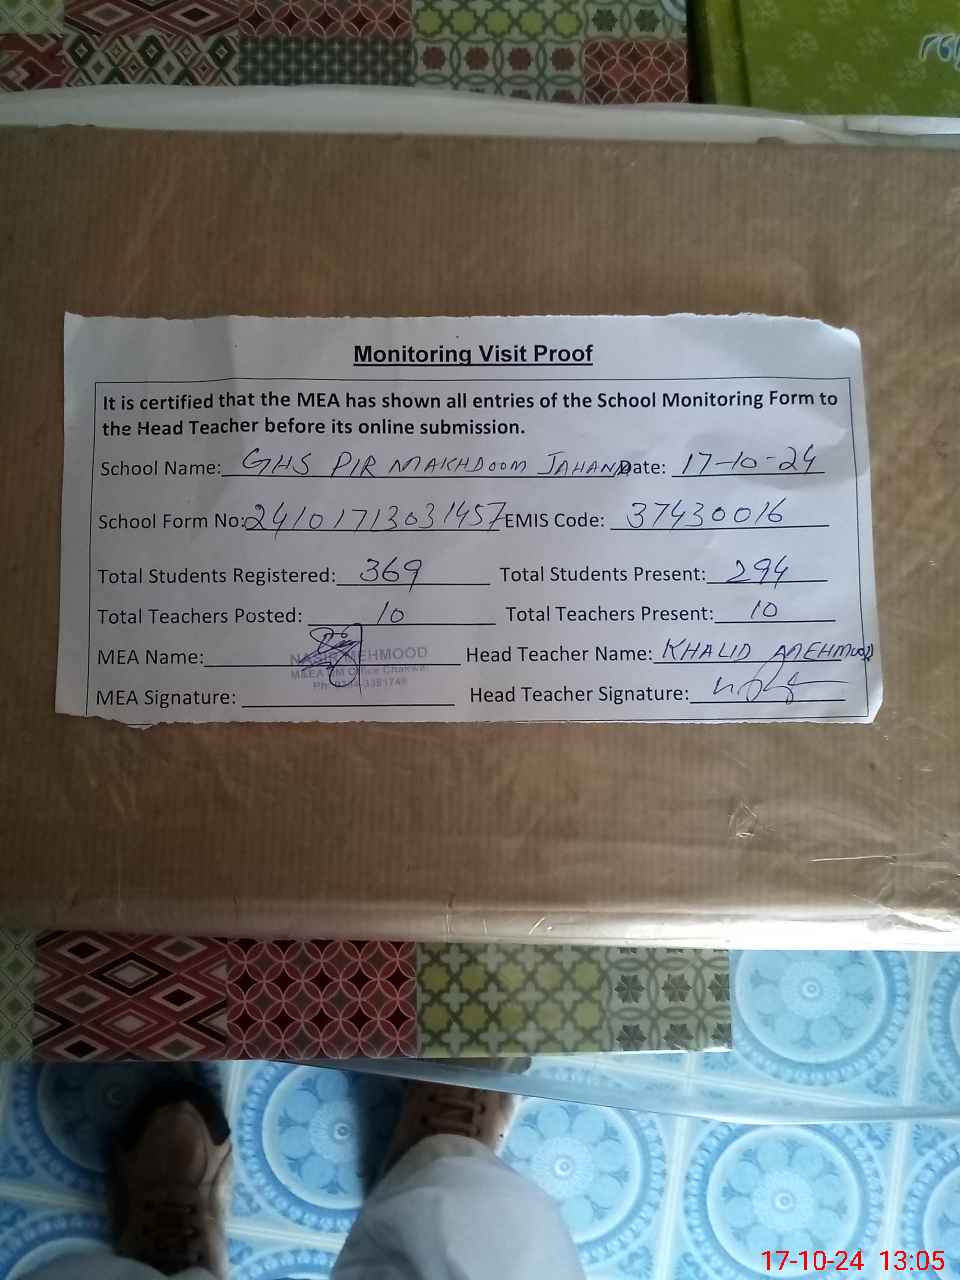 Monitoring Visit Proof
It is certified that the MEA has shown all entries of the School Monitoring Form to
the Head Teacher before its online submission.
School Name: GHS PIR MAKHDOOM JAHANIA Date: 17-10-24
School Form No: 24101713031457 EMIS Code: 37430016
Total Students Registered: 369 Total Students Present: 294
Total Teachers Posted: 10 Total Teachers Present: 10
MEA Name: MEHMOOD Head Teacher Name: KHALID MEHMOOD
Office Chakwal
MEA Signature: Head Teacher Signature:
17-10-24 13:05